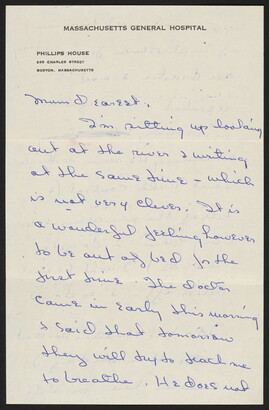 MASSACHUSETTS GENERAL HOSPITAL
PHILLIPS HOUSE
BOSTON, MASSACHUSETTS
Mum Dearest,
I'm sitting up looking
out at the river & writing
at the same time - which
is not very clever. It is
a wonderful feeling however
to be out of bed for the
first time. The doctor
came in early this morning
& said that tomorrow
they will try to teach me
to breathe. He does not